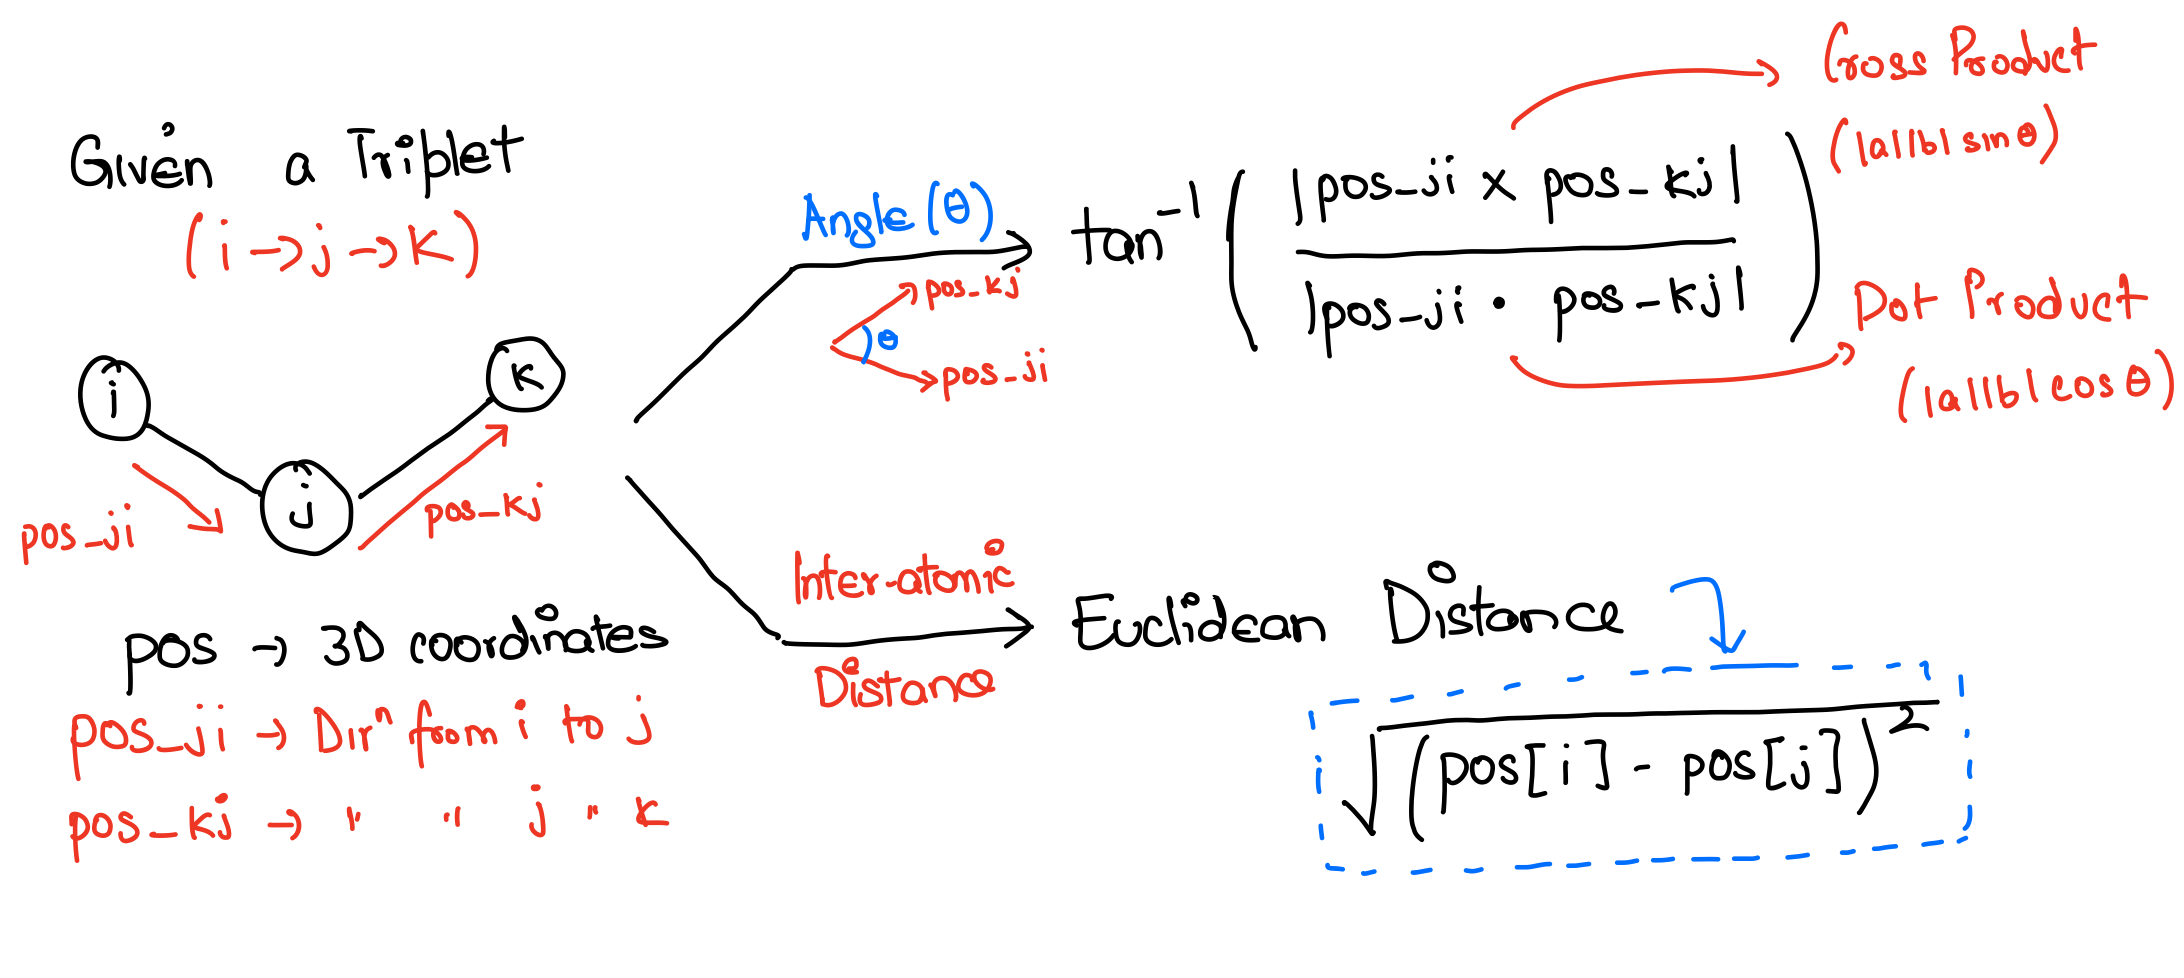 Given a Triplet
(i → j → k)
i
j
k
pos_ji
pos_kj
pos → 3D coordinates
pos_ji → Dirⁿ from i to j
pos_kj → " " j " k
Angle (θ)
pos_kj
θ
pos_ji
tan⁻¹ ( |pos_ji × pos_kj| / |pos_ji • pos_kj| )
Cross Product
(|a||b| sin θ)
Dot Product
(|a||b| cos θ)
Inter-atomic
Distance
Euclidean Distance
√(pos[i] - pos[j])²